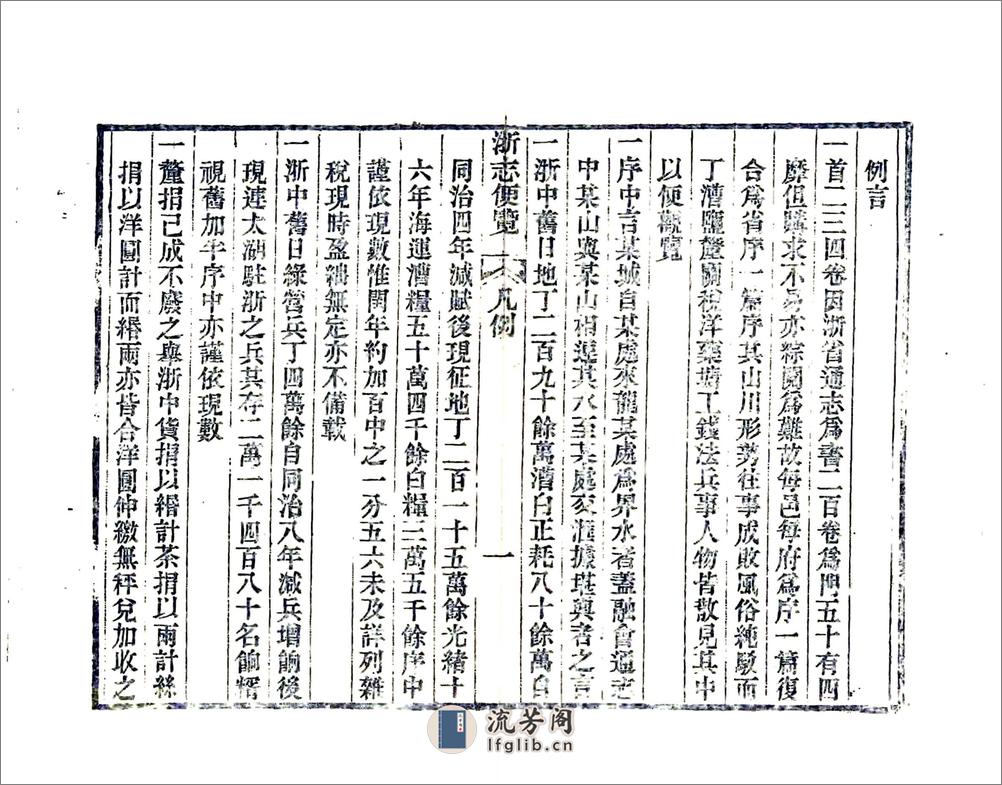 例言
一首二三四卷因浙省通志爲書二百卷爲門五十有四
靡但購求不易亦綜閱爲難故每邑每府爲序一篇復
合爲省序一篇序其山川形勢往事成敗風俗純駁而
丁漕鹽釐關稅洋藥塘工錢法兵事人物皆散見其中
以便觀覽
一序中言某城自某處來龍某處爲界水者蓋融會通志
中某山與某山相連其水至某處交滙據堪輿者之言
一浙中舊日地丁二百九十餘萬漕白正耗八十餘萬自
浙志便覽 凡例 一
同治四年減賦後現征地丁二百一十五萬餘光緒十
六年海運漕糧五十萬四千餘白糧三萬五千餘序中
謹依現數惟閏年約加百中之一分五六未及詳列雜
稅現時盈絀無定亦不備載
一浙中舊日綠營兵丁四萬餘自同治八年減兵增餉後
現連太湖駐浙之兵其存二萬一千四百八十名餉糈
視舊加半序中亦謹依現數
一釐捐已成不廢之舉浙中貨捐以緡計茶捐以兩計絲
捐以洋圓計而緡兩亦皆合洋圓仲繳無秤兌加收之
流芳阁
lfglib.cn